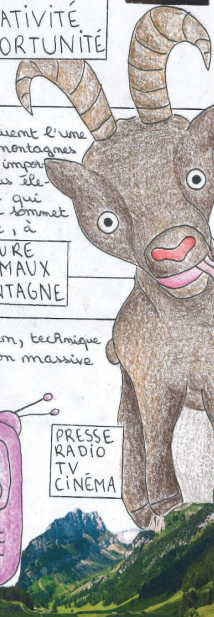 ATIVITÉ
ORTUNITÉ
l'une
montagnes
qui
sommet
, à
URE
MAUX
NTAGNE
, technique
on massive
PRESSE
RADIO
TV
CINÉMA